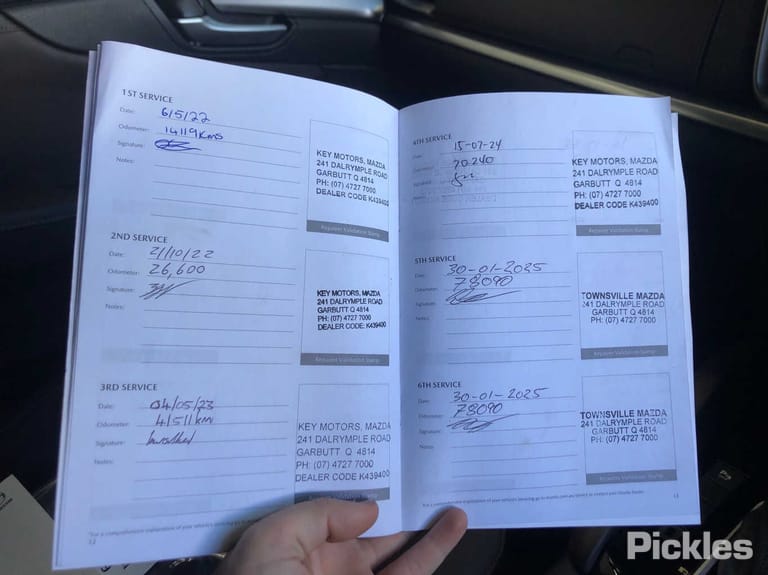 1ST SERVICE
Date: 6/5/22
Odometer: 14119KMS
Signature:
Notes:
KEY MOTORS, MAZDA
241 DALRYMPLE ROAD
GARBUTT Q 4814
PH: (07) 4727 7000
DEALER CODE K439400
Repairer Validation Stamp
2ND SERVICE
Date: 21/10/22
Odometer: 26,600
Signature:
Notes:
KEY MOTORS, MAZDA
241 DALRYMPLE ROAD
GARBUTT Q 4814
PH: (07) 4727 7000
DEALER CODE: K439400
Repairer Validation Stamp
3RD SERVICE
Date: 04/05/23
Odometer: 41511KM
Signature:
Notes:
KEY MOTORS, MAZDA
241 DALRYMPLE ROAD
GARBUTT Q 4814
PH: (07) 4727 7000
DEALER CODE K439400
Repairer Validation Stamp
12
4TH SERVICE
Date: 15-07-24
Odometer: 70240
Signature:
KEY MOTORS, MAZDA
241 DALRYMPLE ROAD
GARBUTT Q 4814
PH: (07) 4727 7000
DEALER CODE K439400
Repairer Validation Stamp
5TH SERVICE
Date: 30-01-2025
Odometer: 78090
Signature:
Notes:
TOWNSVILLE MAZDA
241 DALRYMPLE ROAD
GARBUTT Q 4814
PH: (07) 4727 7000
Repairer Validation Stamp
6TH SERVICE
Date: 30-01-2025
Odometer: 78090
Signature:
Notes:
TOWNSVILLE MAZDA
241 DALRYMPLE ROAD
GARBUTT Q 4814
PH: (07) 4727 7000
Repairer Validation Stamp
13
Pickles